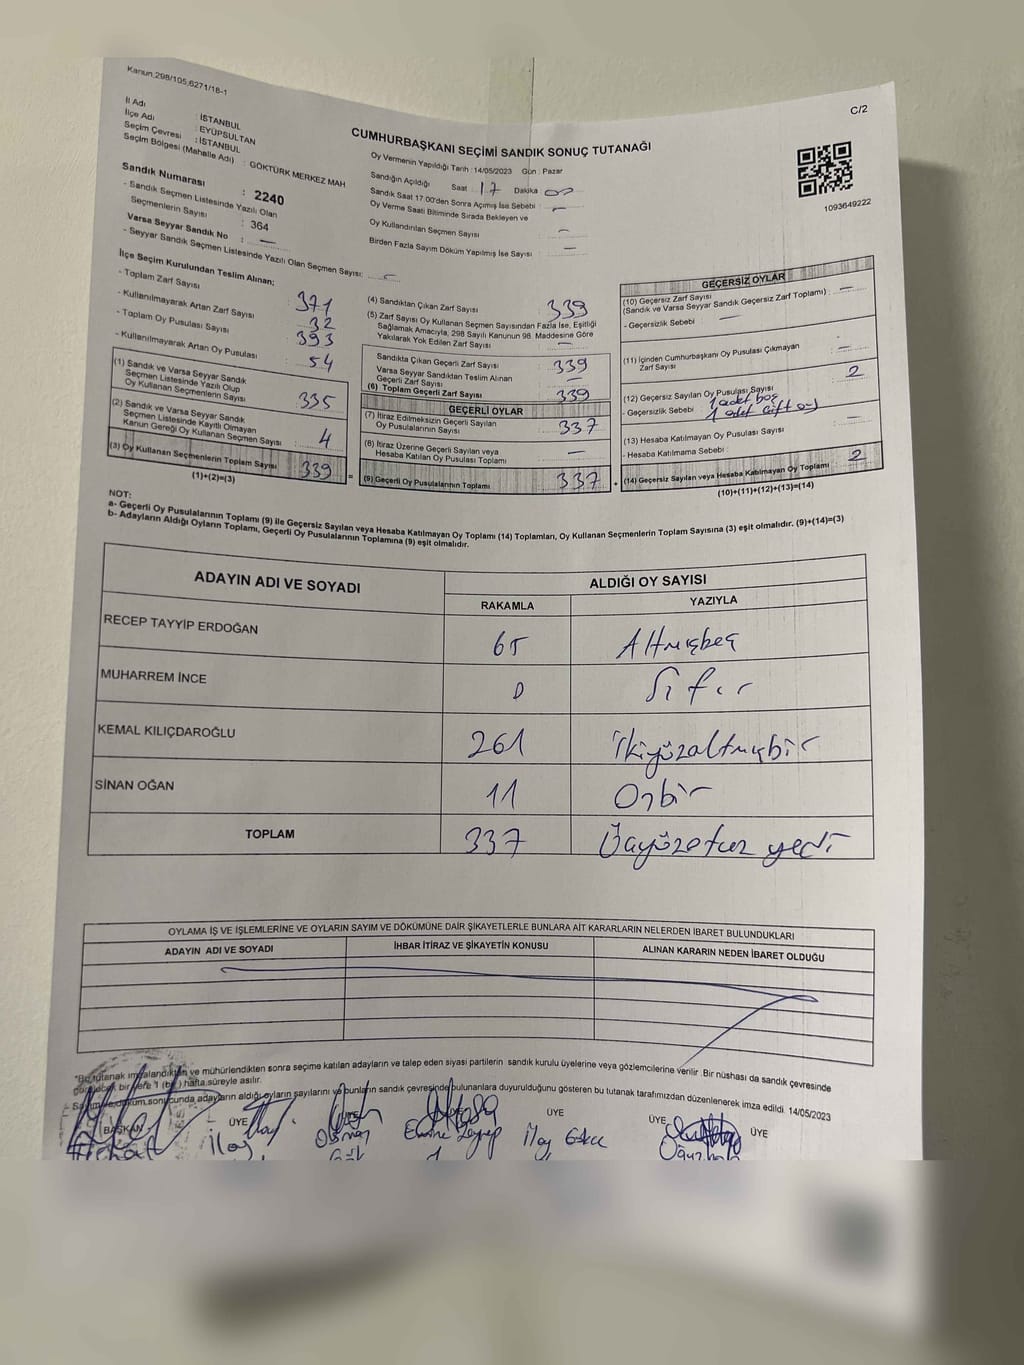 Kanun,298/105,6271/18-1
C/2
İl Adı : İSTANBUL
İlçe Adı : EYÜPSULTAN
Seçim Çevresi : İSTANBUL
Seçim Bölgesi (Mahalle Adı) : GÖKTÜRK MERKEZ MAH
Sandık Numarası : 2240
- Sandık Seçmen Listesinde Yazılı Olan
Seçmenlerin Sayısı : 364
Varsa Seyyar Sandık No : —
- Seyyar Sandık Seçmen Listesinde Yazılı Olan Seçmen Sayısı:
CUMHURBAŞKANI SEÇİMİ SANDIK SONUÇ TUTANAĞI
Oy Vermenin Yapıldığı Tarih : 14/05/2023 Gün : Pazar
Sandığın Açıldığı Saat : 17 Dakika : 00
Sandık Saat 17.00'den Sonra Açımış İse Sebebi : —
Oy Verme Saati Bitiminde Sırada Bekleyen ve
Oy Kullandırılan Seçmen Sayısı : —
Birden Fazla Sayım Döküm Yapılmış İse Sayısı : —
1093649222
İlçe Seçim Kurulundan Teslim Alınan;
- Toplam Zarf Sayısı : 371
- Kullanılmayarak Artan Zarf Sayısı : 32
- Toplam Oy Pusulası Sayısı : 393
- Kullanılmayarak Artan Oy Pusulası : 54
(1) Sandık ve Varsa Seyyar Sandık
Seçmen Listesinde Yazılı Olup
Oy Kullanan Seçmenlerin Sayısı : 335
(2) Sandık ve Varsa Seyyar Sandık
Seçmen Listesinde Kayıtlı Olmayan
Kanun Gereği Oy Kullanan Seçmen Sayısı : 4
(3) Oy Kullanan Seçmenlerin Toplam Sayısı : 339
(1)+(2)=(3)
(4) Sandıktan Çıkan Zarf Sayısı : 339
(5) Zarf Sayısı Oy Kullanan Seçmen Sayısından Fazla İse, Eşitliği
Sağlamak Amacıyla, 298 Sayılı Kanunun 98. Maddesine Göre
Yakılarak Yok Edilen Zarf Sayısı : —
Sandıkta Çıkan Geçerli Zarf Sayısı : 339
Varsa Seyyar Sandıktan Teslim Alınan
Geçerli Zarf Sayısı : —
(6) Toplam Geçerli Zarf Sayısı : 339
GEÇERLİ OYLAR
(7) İtiraz Edilmeksizin Geçerli Sayılan
Oy Pusulalarının Sayısı : 337
(8) İtiraz Üzerine Geçerli Sayılan veya
Hesaba Katılan Oy Pusulası Toplamı : —
= (9) Geçerli Oy Pusulalarının Toplamı : 337
GEÇERSİZ OYLAR
(10) Geçersiz Zarf Sayısı
(Sandık ve Varsa Seyyar Sandık Geçersiz Zarf Toplamı) : —
- Geçersizlik Sebebi : —
(11) İçinden Cumhurbaşkanı Oy Pusulası Çıkmayan
Zarf Sayısı : —
(12) Geçersiz Sayılan Oy Pusulası Sayısı : 2
- Geçersizlik Sebebi : 1 adet boş
1 adet çift oy
(13) Hesaba Katılmayan Oy Pusulası Sayısı : —
- Hesaba Katılmama Sebebi :
+ (14) Geçersiz Sayılan veya Hesaba Katılmayan Oy Toplamı : 2
(10)+(11)+(12)+(13)=(14)
NOT:
a- Geçerli Oy Pusulalarının Toplamı (9) ile Geçersiz Sayılan veya Hesaba Katılmayan Oy Toplamı (14) Toplamları, Oy Kullanan Seçmenlerin Toplam Sayısına (3) eşit olmalıdır. (9)+(14)=(3)
b- Adayların Aldığı Oyların Toplamı, Geçerli Oy Pusulalarının Toplamına (9) eşit olmalıdır.
ADAYIN ADI VE SOYADI ALDIĞI OY SAYISI
RAKAMLA YAZIYLA
RECEP TAYYİP ERDOĞAN 65 Altmışbeş
MUHARREM İNCE 0 Sıfır
KEMAL KILIÇDAROĞLU 261 İkiyüzaltmışbir
SİNAN OĞAN 11 Onbir
TOPLAM 337 Üçyüzotuz yedi
OYLAMA İŞ VE İŞLEMLERİNE VE OYLARIN SAYIM VE DÖKÜMÜNE DAİR ŞİKAYETLERLE BUNLARA AİT KARARLARIN NELERDEN İBARET BULUNDUKLARI
ADAYIN ADI VE SOYADI İHBAR İTİRAZ VE ŞİKAYETİN KONUSU ALINAN KARARIN NEDEN İBARET OLDUĞU
"Bu tutanak imzalandıktan ve mühürlendikten sonra seçime katılan adayların ve talep eden siyasi partilerin sandık kurulu üyelerine veya gözlemcilerine verilir. Bir nüshası da sandık çevresinde
bir yere 1 (bir) hafta süreyle asılır.
Sayım ve döküm sonucunda adayların aldığı oyların sayılarını ve bunların sandık çevresinde bulunanlara duyurulduğunu gösteren bu tutanak tarafımızdan düzenlenerek imza edildi. 14/05/2023
BAŞKAN ÜYE ÜYE ÜYE ÜYE
İlay Osman Emine Zeynep İlay Gökçe